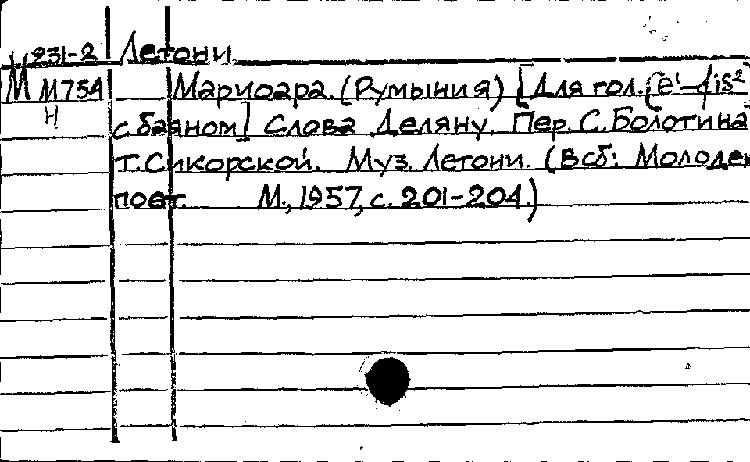 М 931-2 Летони
М М754 Мариоара. (Румыния) [Для гол. (e¹-fis²
Н с баяном] Слова Деляну. Пер. С. Болотина
Т. Сикорской. Муз. Летони. (В сб: Молоде
поет. М., 1957, с. 201-204.)